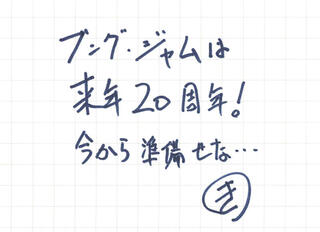 ブング・ジャムは
来年20周年!
今から準備せな…
き